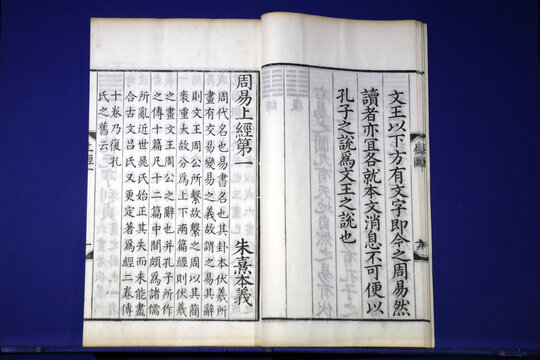 文王以下方有文字即今之周易然
讀者亦宜各就本文消息不可便以
孔子之說爲文王之說也
周易上經第一
朱熹本義
周代名也易書名也其卦本伏羲所
畫有交易變易之義故謂之易其辭
則文王周公所繫故繫之周以其簡
袠重大故分爲上下兩篇經則伏羲
之畫文王周公之辭也并孔子所作
之傳十篇凡十二篇中間頗爲諸儒
所亂近世晁氏始正其失而未能盡
合古文呂氏又更定著爲經二卷傳
十卷乃復孔
氏之舊云